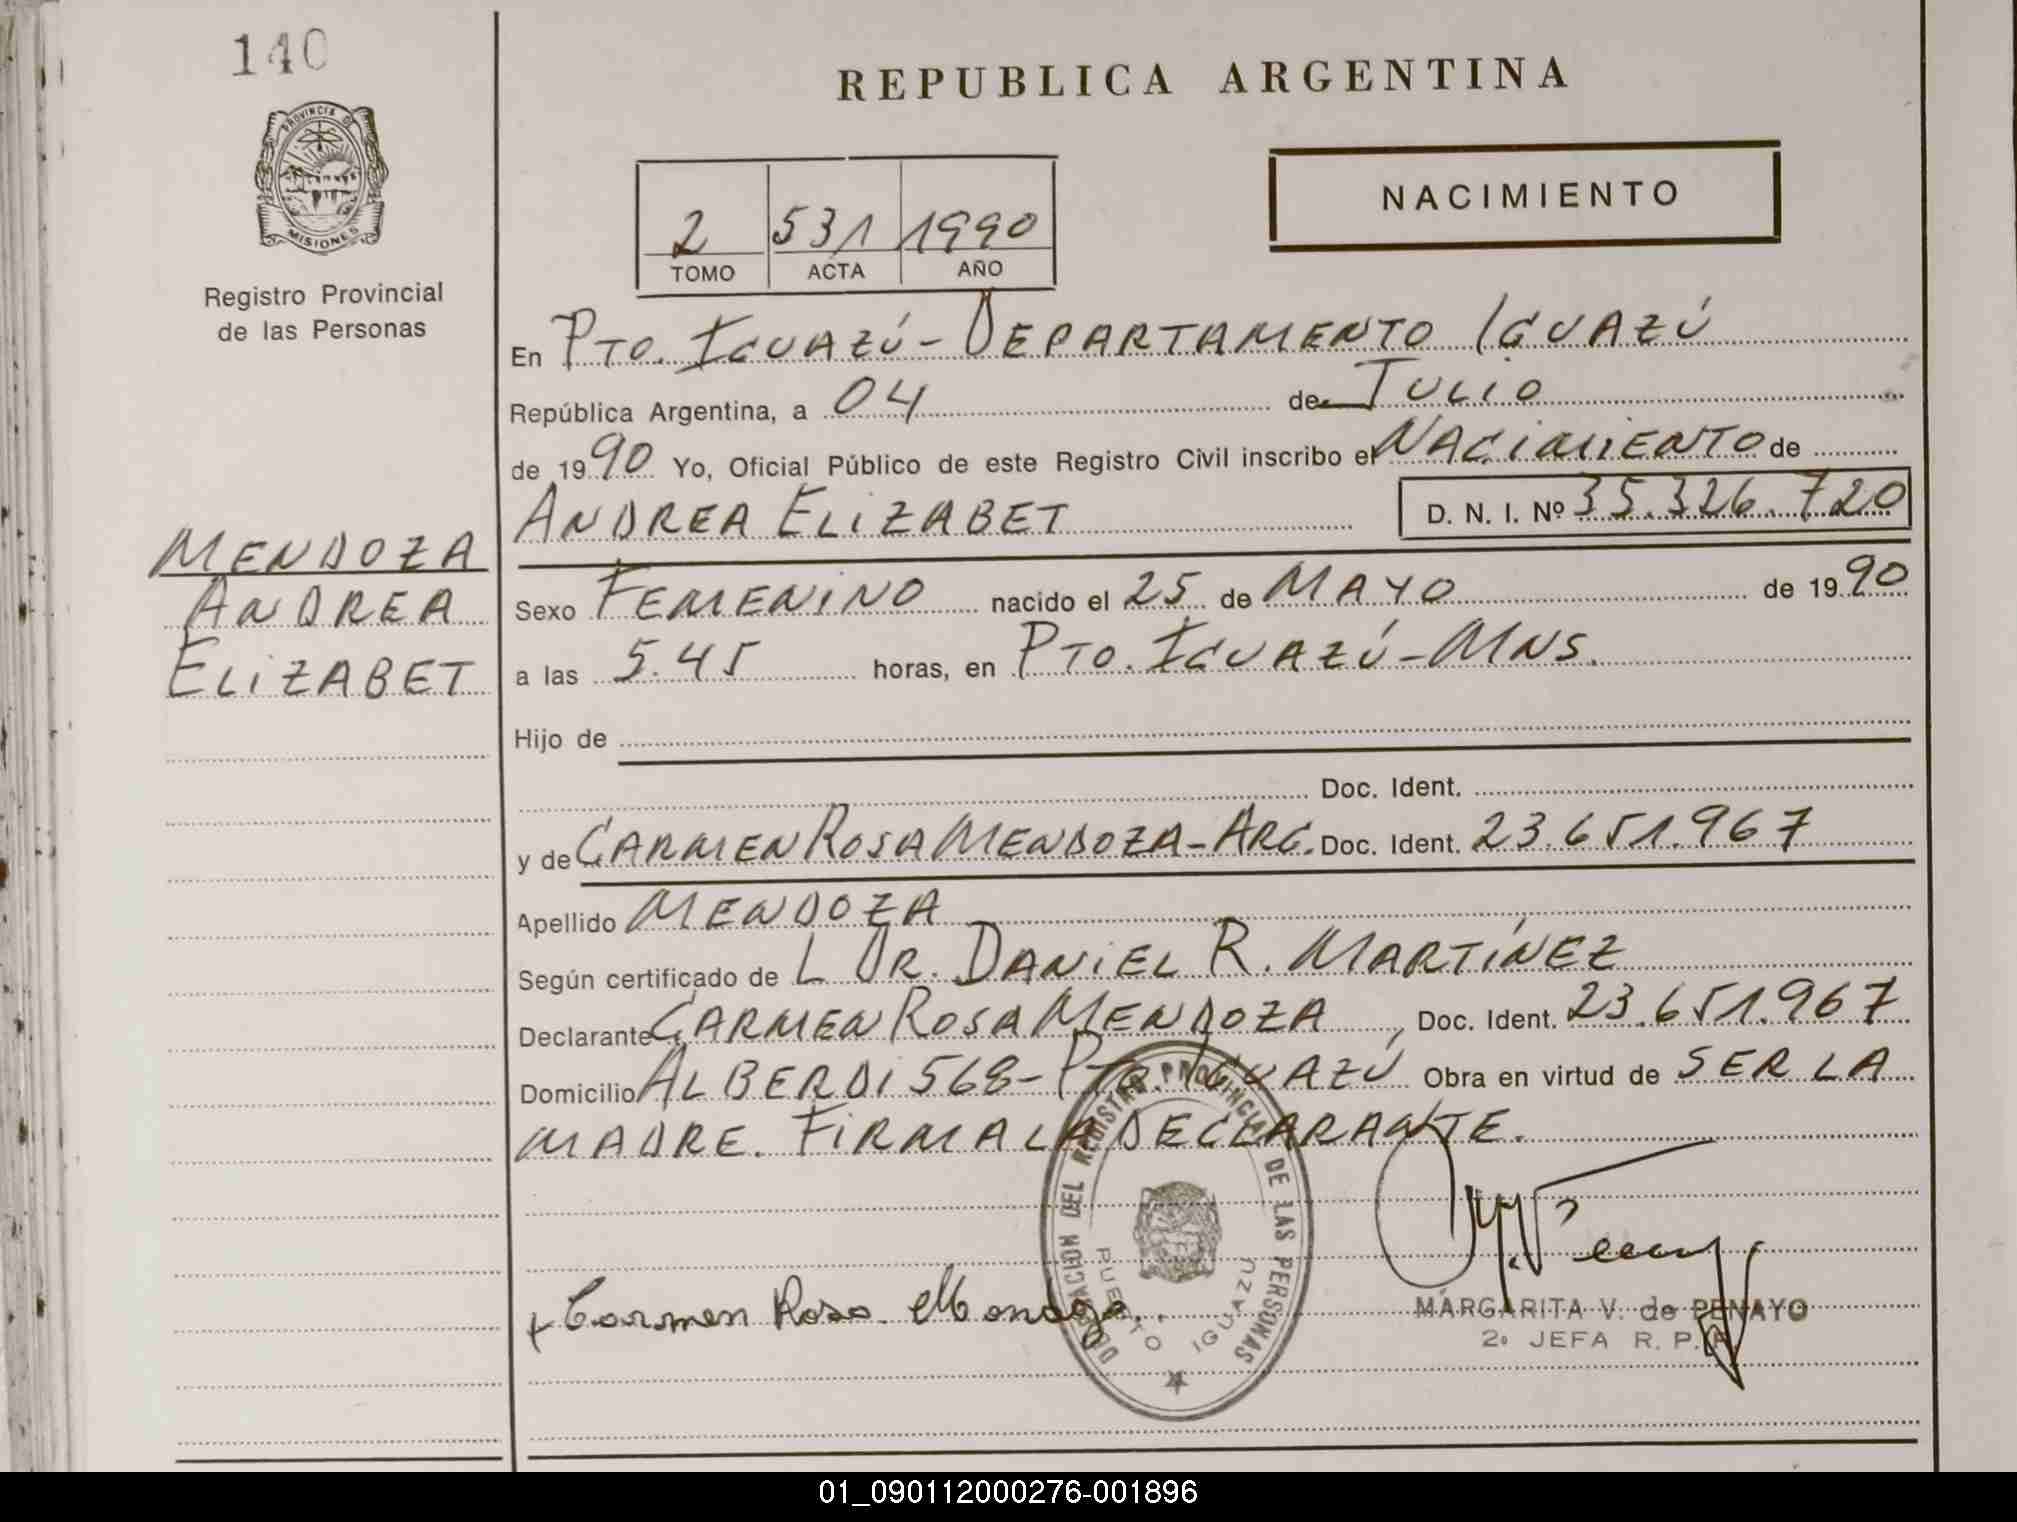 140
REPUBLICA ARGENTINA
PROVINCIA DE
MISIONES
Registro Provincial
de las Personas
2 531 1990
TOMO ACTA AÑO
NACIMIENTO
En PTO. IGUAZÚ - DEPARTAMENTO IGUAZÚ
República Argentina, a 04 de JULIO
de 1990 Yo, Oficial Público de este Registro Civil inscribo el NACIMIENTO de
ANDREA ELIZABET D. N. I. Nº 35.326.720
MENDOZA
ANDREA
ELIZABET
Sexo FEMENINO nacido el 25 de MAYO de 1990
a las 5.45 horas, en PTO. IGUAZÚ - MNS.
Hijo de
Doc. Ident.
y de CARMEN ROSA MENDOZA - ARG. Doc. Ident. 23.651.967
Apellido MENDOZA
Según certificado de L DR. DANIEL R. MARTÍNEZ
Declarante CARMEN ROSA MENDOZA, Doc. Ident. 23.651.967
Domicilio ALBERDI 568 - PTO. IGUAZÚ Obra en virtud de SER LA
MADRE. FIRMA LA DECLARANTE.
DELEGACION DEL REGISTRO PROVINCIAL DE LAS PERSONAS
PUERTO IGUAZU
Carmen Rosa
MARGARITA V. de PENAYO
2º JEFA R. P. P.
01_090112000276-001896